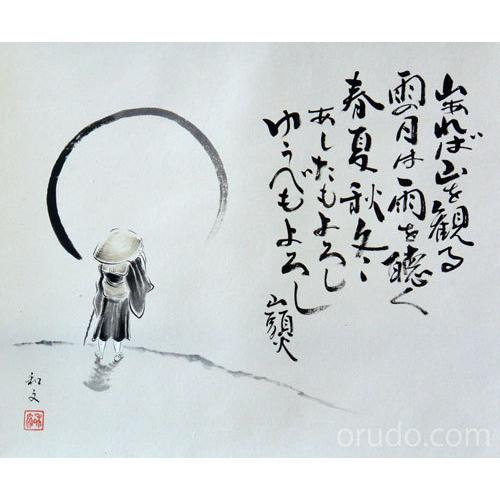 山あれば山を観る
雨の日は雨を聴く
春夏秋冬
あしたもよろし
ゆうべもよろし
山頭火
和文
orudo.com